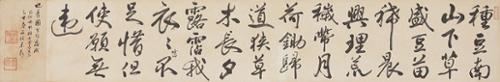 種豆南
山下草
盛豆苗
稀晨
興理荒
穢帶月
荷鋤歸
道狹草
木長夕
露霑我
衣〻不
足惜但
使願無
違